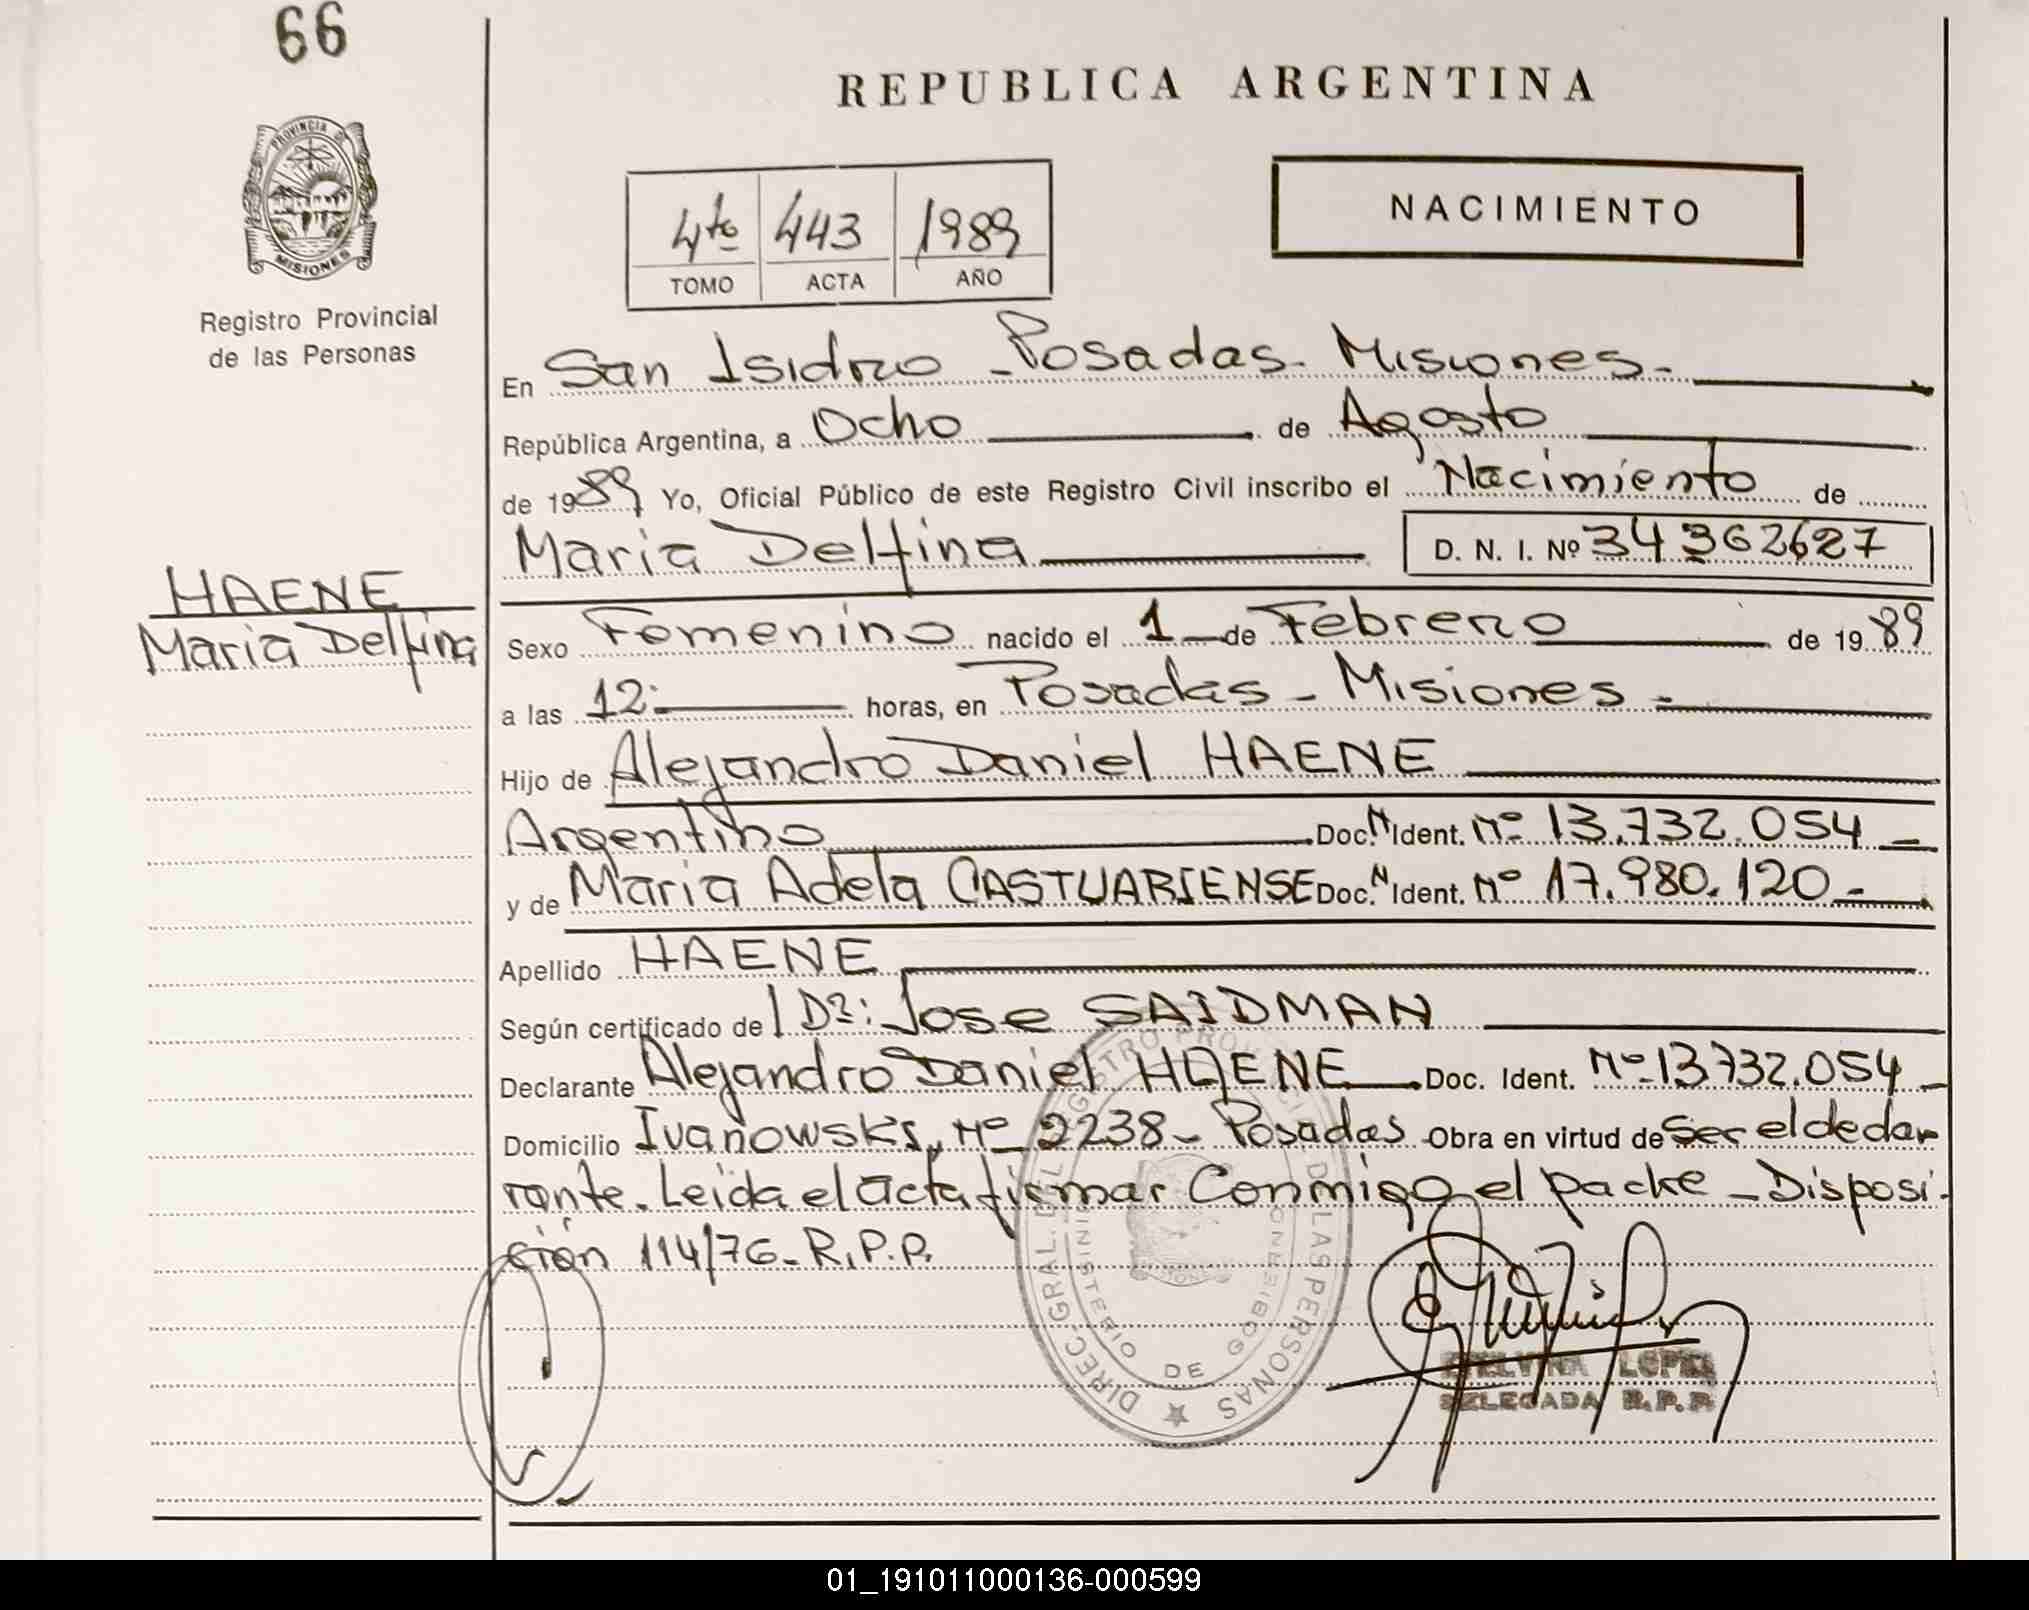 66
PROVINCIA DE
MISIONES
Registro Provincial
de las Personas
REPUBLICA ARGENTINA
4to 443 1989
TOMO ACTA AÑO
NACIMIENTO
En San Isidro - Posadas - Misiones -
República Argentina, a Ocho de Agosto
de 1989 Yo, Oficial Público de este Registro Civil inscribo el Nacimiento de
Maria Delfina D. N. I. Nº 34362627
HAENE
Maria Delfina
Sexo Femenino nacido el 1 de Febrero de 1989
a las 12: horas, en Posadas - Misiones -
Hijo de Alejandro Daniel HAENE
Argentino Doc. N Ident. Nº 13.732.054 -
y de Maria Adela CASTUARIENSE Doc. N Ident. Nº 17.980.120 -
Apellido HAENE
Según certificado de Dr: Jose SAIDMAN
Declarante Alejandro Daniel HAENE Doc. Ident. Nº 13732.054 -
Domicilio Ivanowski Nº 2238 - Posadas Obra en virtud de Ser el decla-
rante. Leida el acta firmar Conmigo el padre - Disposi-
ción 114/76 - R.P.P.
DIREC. GRAL. DEL REGISTRO PROVINCIAL DE LAS PERSONAS
MINISTERIO DE GOBIERNO
LOPEZ
DELEGADA R.P.P.
01_191011000136-000599